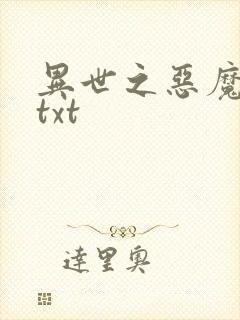 異世之惡魔
txt
達里奧